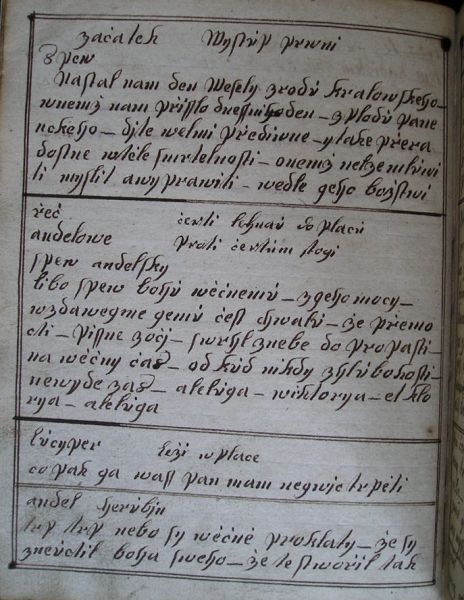 začatek Wystup prwni
Spew
Nastal nam den Wesely zrodu kralowskeho_
wnemž nam přisslo dnessniho den _ zplodu pane
nskeho _ djte welmi přediwne _ y take přera
dostne wtěle smrtelnosti _ onemž nelze mluwi
ti myslit awyprawiti _ wedle geho božstwi
řeč čerti lehnau do placu
andelowe proti čertům stogi
spew andelsky
libo spew bohu wěčnemu _ zgeho mocy _
wzdawegme gemu čest chwalu _ že přemo
cti _ swrhl znebe do propasti _
na wěčny čas _ od kud nikdy zhlubokosti
newyde zas _ aleluga _ wiktorya _ et klo
rya _ aleluga
lucyper leži wplace
co pak ga wass pan mam negwic trpěti
andel cherubjn
trp trp nebo sy wěčně proklaty _ že sy
zneuctil boha sweho _ že te stwořil tak